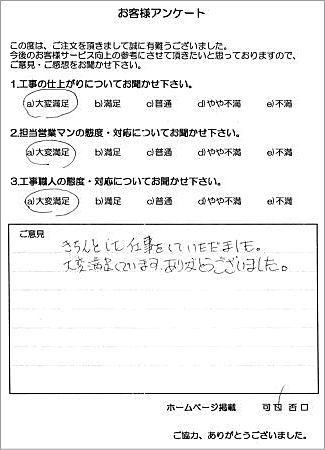 お客様アンケート
この度は、ご注文を頂きまして誠に有難うございました。
今後のお客様サービス向上の参考にさせて頂きたいと思っておりますので、
ご意見・ご感想をお聞かせ下さい。
1.工事の仕上がりについてお聞かせ下さい。
a)大変満足 b)満足 c)普通 d)やや不満 e)不満
2.担当営業マンの態度・対応についてお聞かせ下さい。
a)大変満足 b)満足 c)普通 d)やや不満 e)不満
3.工事職人の態度・対応についてお聞かせ下さい。
a)大変満足 b)満足 c)普通 d)やや不満 e)不満
ご意見
きちんとした仕事をしていただきました。
大変満足しています。ありがとうございました。
ホームページ掲載 可口 否口
ご協力、ありがとうございました。